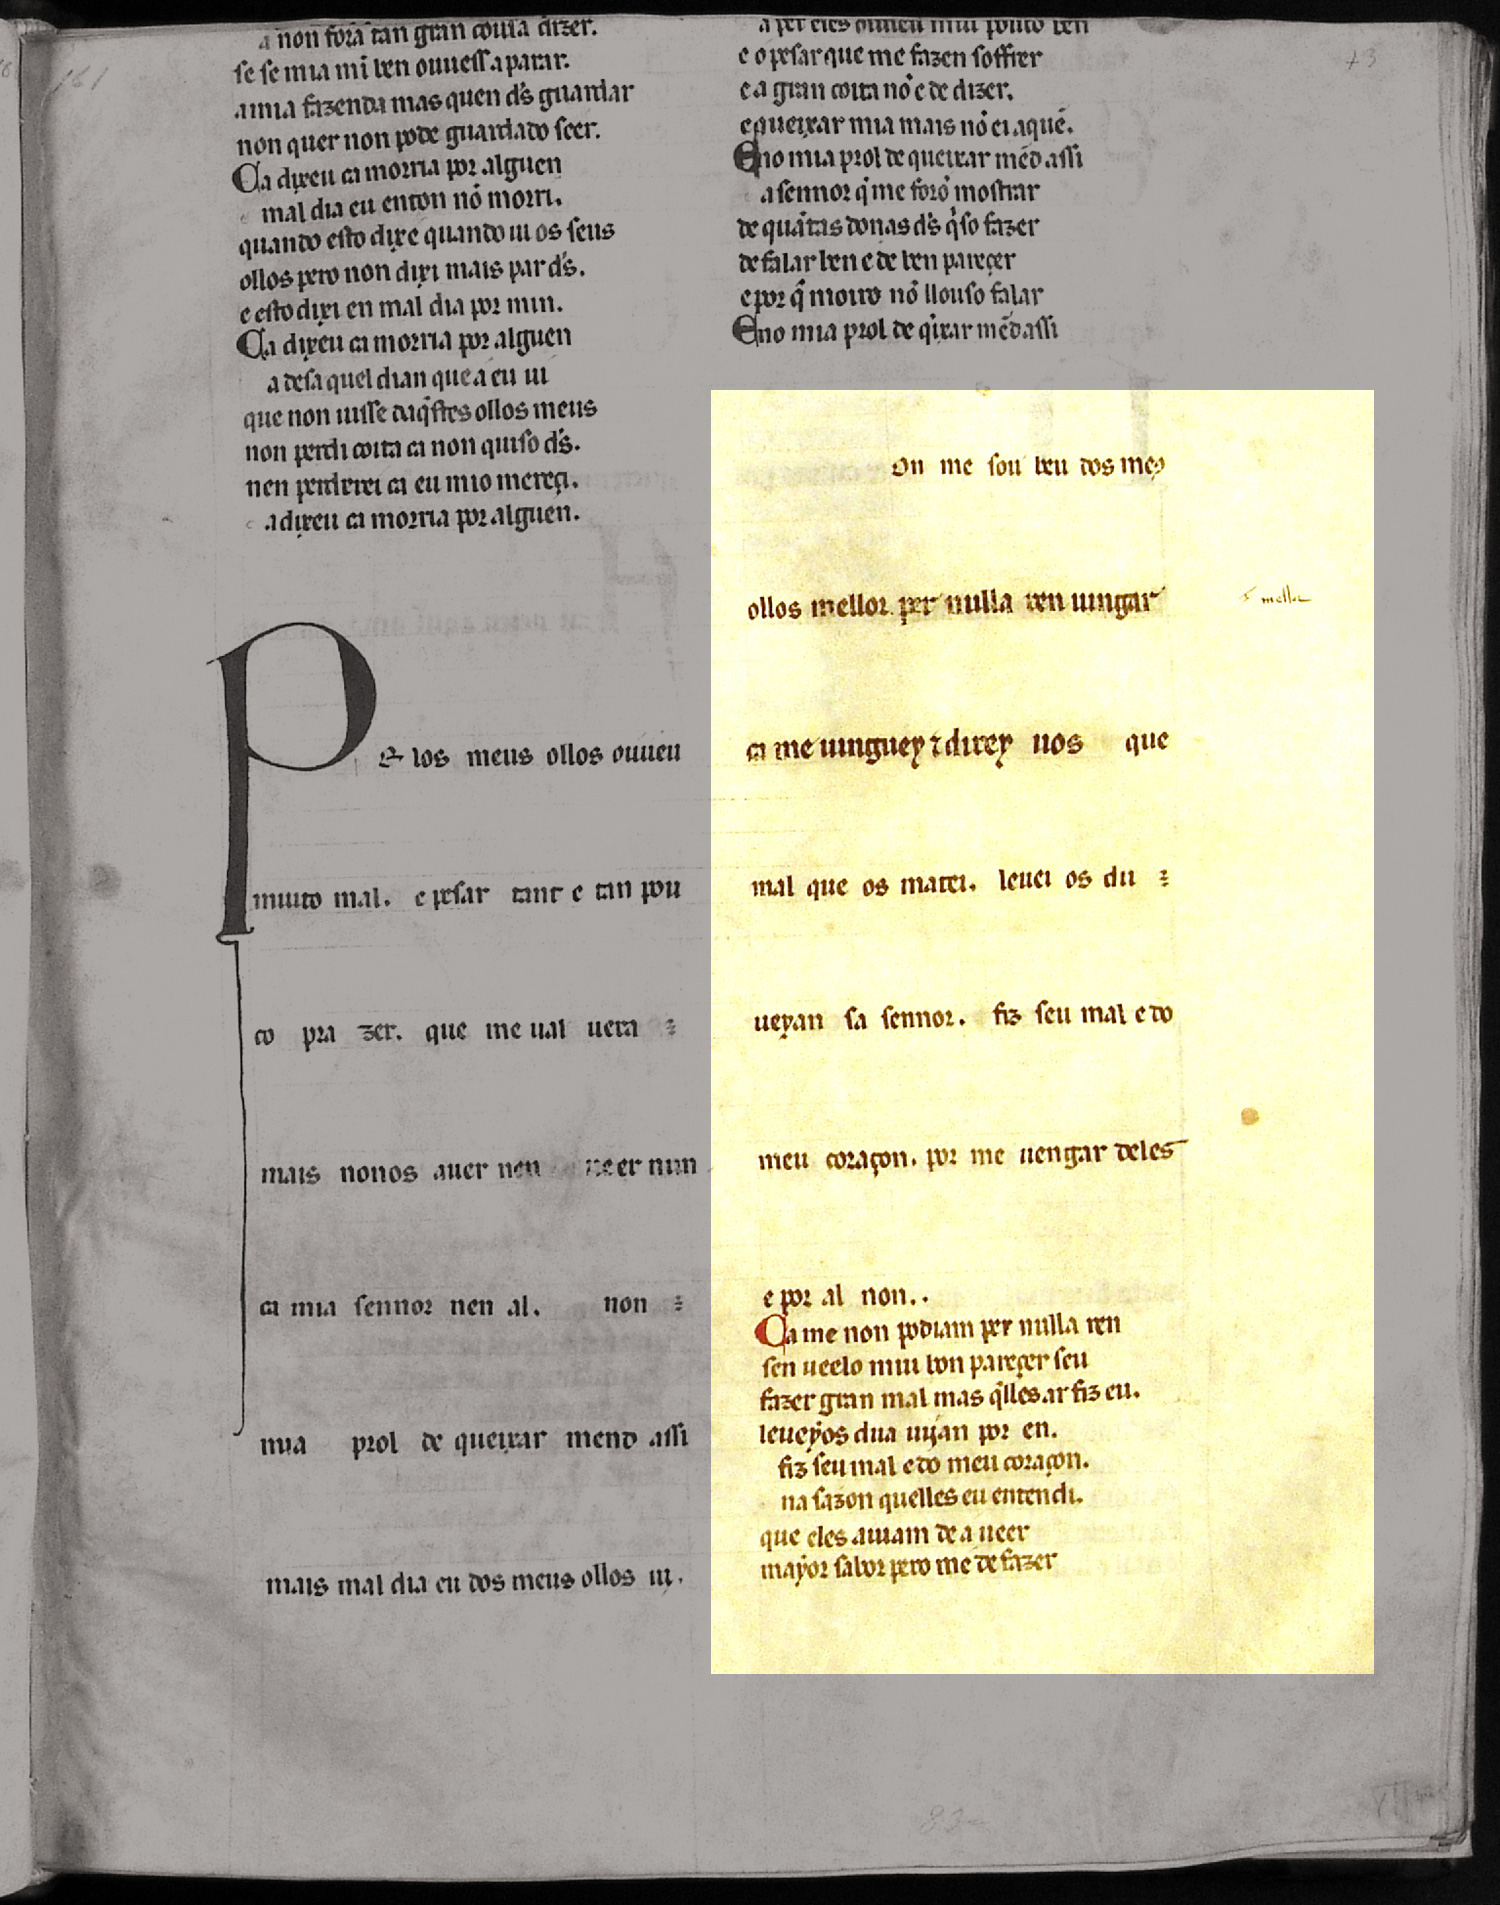 a non fora tan gran couia dizer.
se se mia mĩ ben ouuess aparar.
amia fazenda mas quen d̃s guardar
non quer non pode guardado seer.
Ca dixeu ca morria por alguen
mal dia eu enton nõ morri.
quando esto dixe quando ui os seus
ollos pero non dixi mais par d̃s.
e esto dixi en mal dia por min.
Ca dixeu ca morria por alguen
a desaquel dian que a eu ui
que non uisse daq̃stes ollos meus
non perdi coita ca non quiso d̃s.
nen perderei ca eu mio mereçi.
adixeu ca morria por alguen.
Pe los meus ollos ouueu
muito mal. e pesar tant e tan pou
co pra zer. que me ual uera
mais nonos auer nen ueer nun
ca mia sennor nen al. non
mia prol de queixar mend assi
mais mal dia eu dos meus ollos ui.
a per eles ouueu mui pouco ben
e o pesar que me fazen soffrer
e a gran coita nõ e de dizer.
e queixar mia mais nõ ei aquẽ.
Eno mia prol de queixar mẽd assi
a sennor q̃ me forõ mostrar
de quãtas donas d̃s q̃so fazer
de falar ben e de ben pareçer
e por q̃ moiro nõ llouso falar
Eno mia prol de q̃ixar mẽdassi
on me sou beu dos me9
ollos mellor per nulla ren uingar
mellor
ca me uinguey ⁊ direy uos que
mal que os matei. leuei os du
ueyan sa sennor. fiz seu mal e do
meu coraçon. por me uengar deles
e por al non..
Ca me non podiam per nulla ren
sen ueelo mui bon pareçer seu
fazer gran mal mas q̃lles ar fiz eu.
leueyos dua uijan por en.
fiz seu mal e do meu coraçon.
na sazon quelles eu entendi.
que eles auiam de a ueer
mayor sabor pero me de fazer